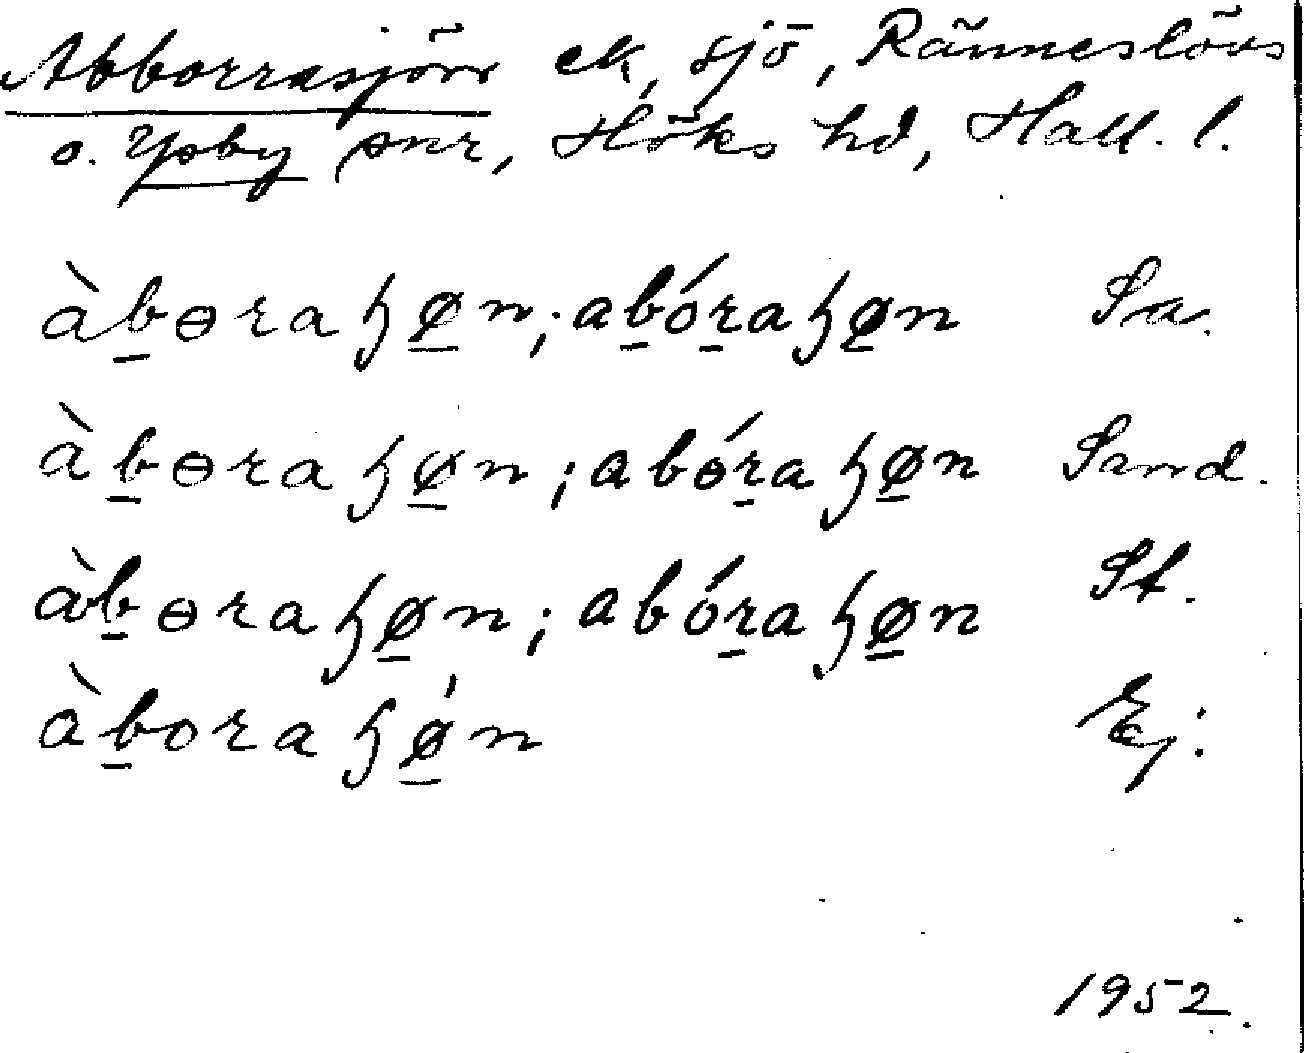 Abborrasjön ek, sjö, Ränneslövs
o. Ysby snr, Höks hd, Hall. l.
àb̲ɵraɧø̲n; ab̲ór̲aɧø̲n Sa.
àb̲ɵraɧø̲n; abɵ́r̲aɧø̲n Sand.
àb̲ɵraɧø̲n; abór̲aɧø̲n St.
àb̲oraɧǿ̲n Ej.
1952.